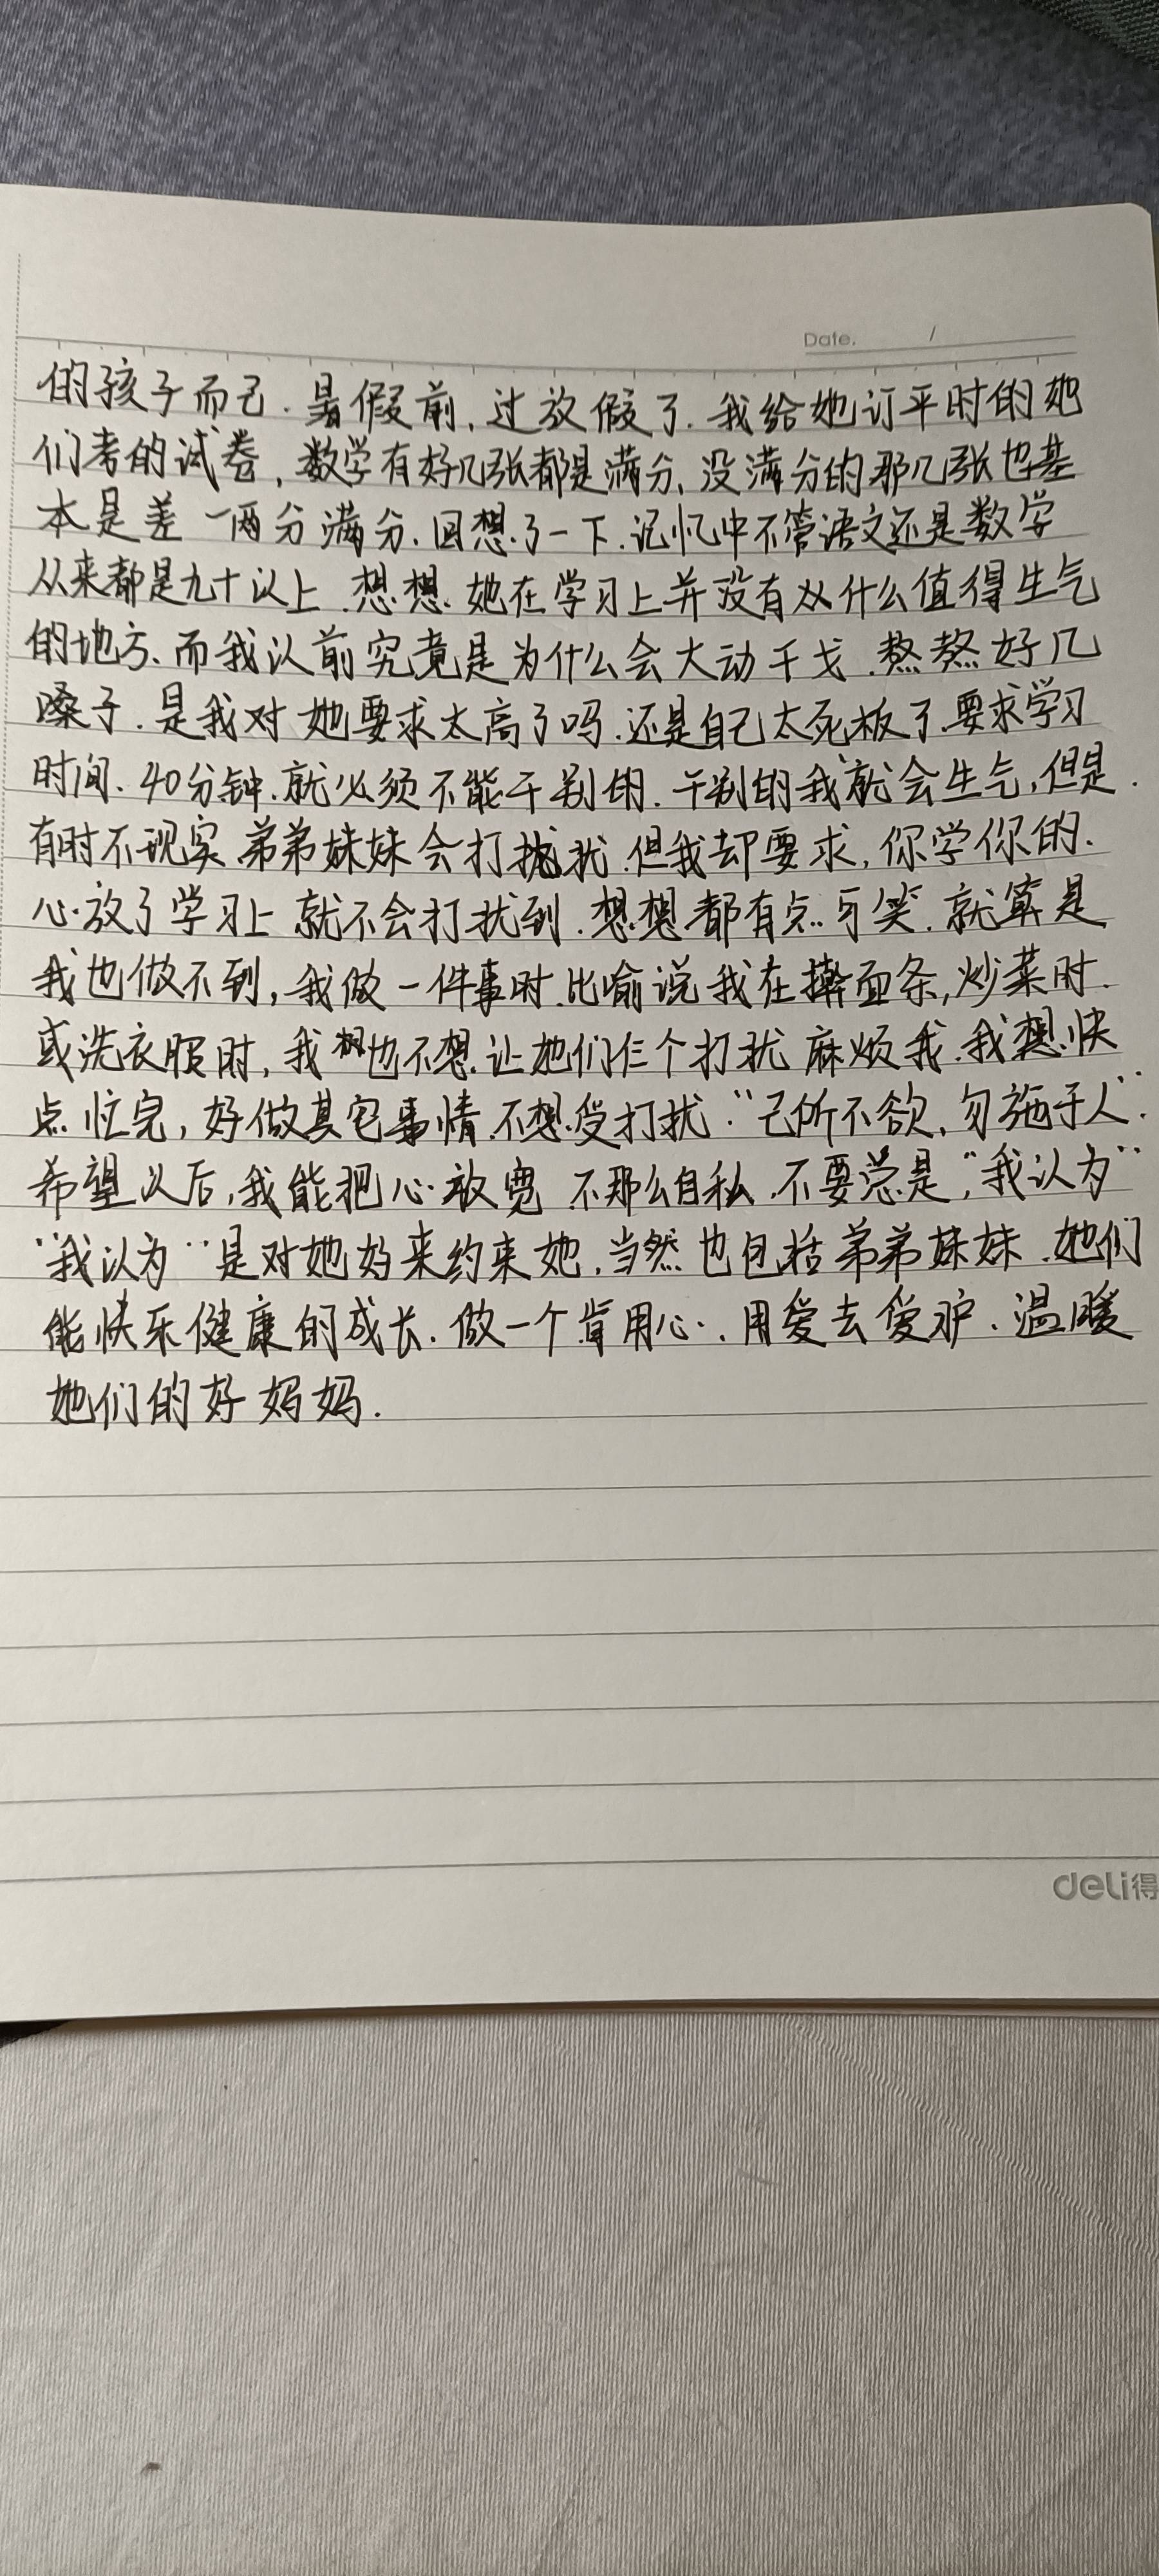 Date. /
的孩子而已.暑假前,过放假了.我给她订平时的她
们考的试卷,数学有好几张都是满分、没满分的那几张也基
本是差一两分满分.回想了一下.记忆中不管语文还是数学
从来都是九十以上.想想.她在学习上并没有什么值得生气
的地方、而我以前究竟是为什么会大动干戈.熬熬好几
嗓子.是我对她要求太高了吗.还是自己太死板了.要求学习
时间、40分钟.就必须不能干别的.干别的我就会生气,但是.
有时不现实.弟弟妹妹会打扰.但我却要求,你学你的.
心放了学习上 就不会打扰到.想想都有点可笑.就算是
我也做不到,我做一件事时.比喻说我在擀面条,炒菜时.
或洗衣服时,我也不想让她们仨个打扰麻烦我.我想快
点忙完,好做其它事情.不想受打扰.“己所不欲,勿施于人”.
希望以后,我能把心放宽 不那么自私.不要总是,“我认为”
“我认为”是对她好来约来她,当然也包括弟弟妹妹.她们
能快乐健康的成长.做一个肯用心.用爱去爱护、温暖
她们的好妈妈.
deli得